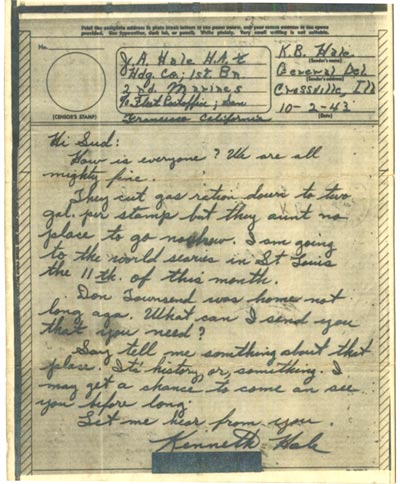 Print the complete address in plain block letters in the panel below, and your return address in the space
provided. Use typewriter, dark ink, or pencil. Write plainly. Very small writing is not suitable.
No.
(CENSOR'S STAMP)
J.A. Hale H.A.
Hdq. Co; 1st. Bn
2 nd. Marines
% Fleet Postoffice; San
Francisco California
K.B. Hale
(Sender's name)
General Del
(Sender's address)
Crossville, Ill
10-2-43
(Date)
Hi Sud:
How is everyone? We are all
mighty fine.
They cut gas retion down to two
gal. per stamp but they aint no
place to go no-how. I am going
to the world searies in St Louis
the 11 th. of this month.
Don Townsend was home not
long ago. What can I send you
that you need?
Say tell me something about that
place. It's history, or something. I
may get a chance to come an see
you before long.
Let me hear from you.
Kenneth Hale